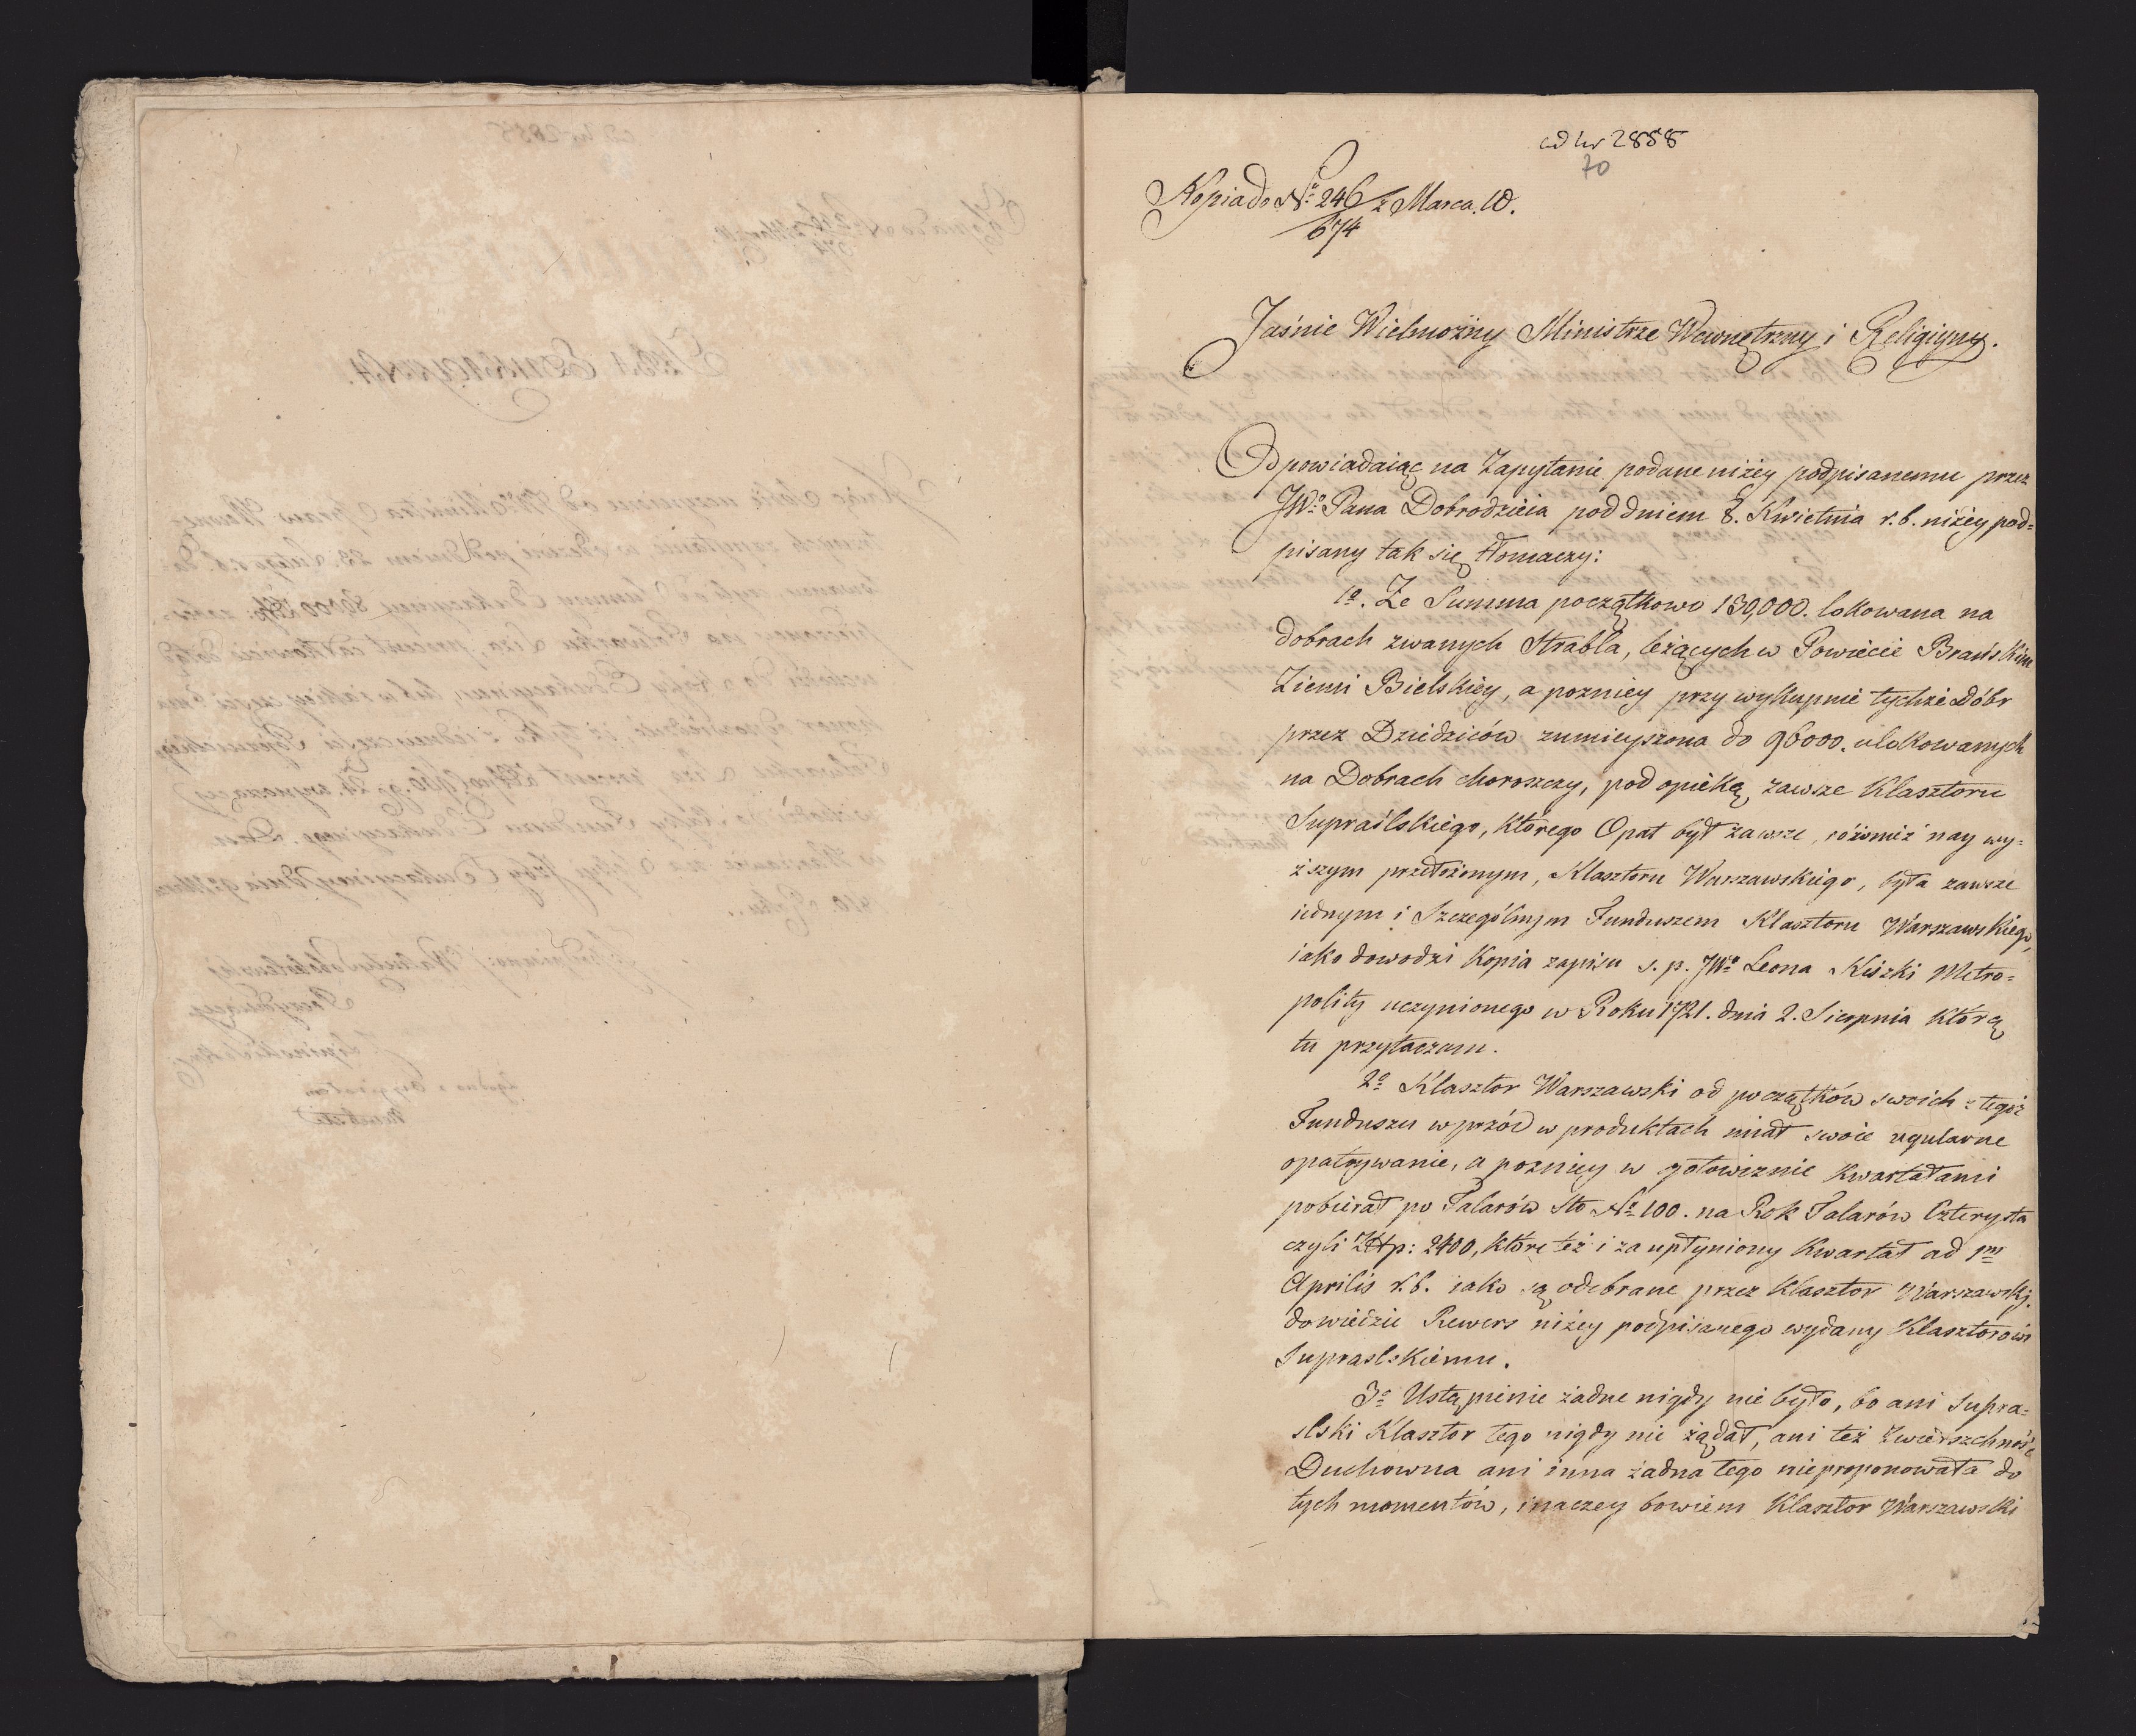 ad Nr 2858
70
Kopia do No 246/674 z Marca. 10.
Jaśnie Wielmożny Ministrze Wewnętrzny i Religiyny.
Odpowiadaiąc na Zapytanie podane niżey podpisanemu przez
JWo Pana Dobrodzieia pod dniem 8. Kwietnia r. b. niżey pod=
pisany tak się tłomaczy:
1o. Ze Summa początkowo 130,000. lokowana na
dobrach zwanych Strabla, leżących w Powiecie Brańskim
Ziemi Bielskiey, a pozniey przy wykupnie tychże Dóbr
przez Dziedziców zmnieyszona do 96000. ulokowanych
na Dobrach Choroszczy, pod opieką zawsze Klasztoru
Supraślskiego, którego Opat był zawsze, również nay wy=
ższym przełożonym, Klasztoru Warszawskiego, była zawsze
iednym i Szczególnym Funduszem Klasztoru Warszawskiego,
iako dowodzi Kopia zapisu s. p. JWo Leona Kiszki Metro=
polity uczynionego w Roku 1721. dnia 2. Sierpnia którą
tu przytaczam.
2o Klasztor Warszawski od początków swoich z tegoż
Funduszu wprzód w produktach miał swoie regularne
opatrywanie, a pozniey w gotowiznie kwartałami
pobierał po Talarów Sto No 100. na Rok Talarów Czterysta
czyli Złłp: 2400, które też i za upłyniony kwartał ad 1m
Aprilis r. b. iako są odebrane przez Klasztor Warszawski.
dowiedzie Rewers niżey podpisanego wydany Klasztorowi
Supraslskiemu.
3o Ustąpienie żadne nigdy nie było, bo ani Supra=
slski Klasztor tego nigdy nie żądał, ani też Zwierszchność
Duchowna ani inna żadna tego nieproponowała do
tych momentów, inaczey bowiem Klasztor Warszawski